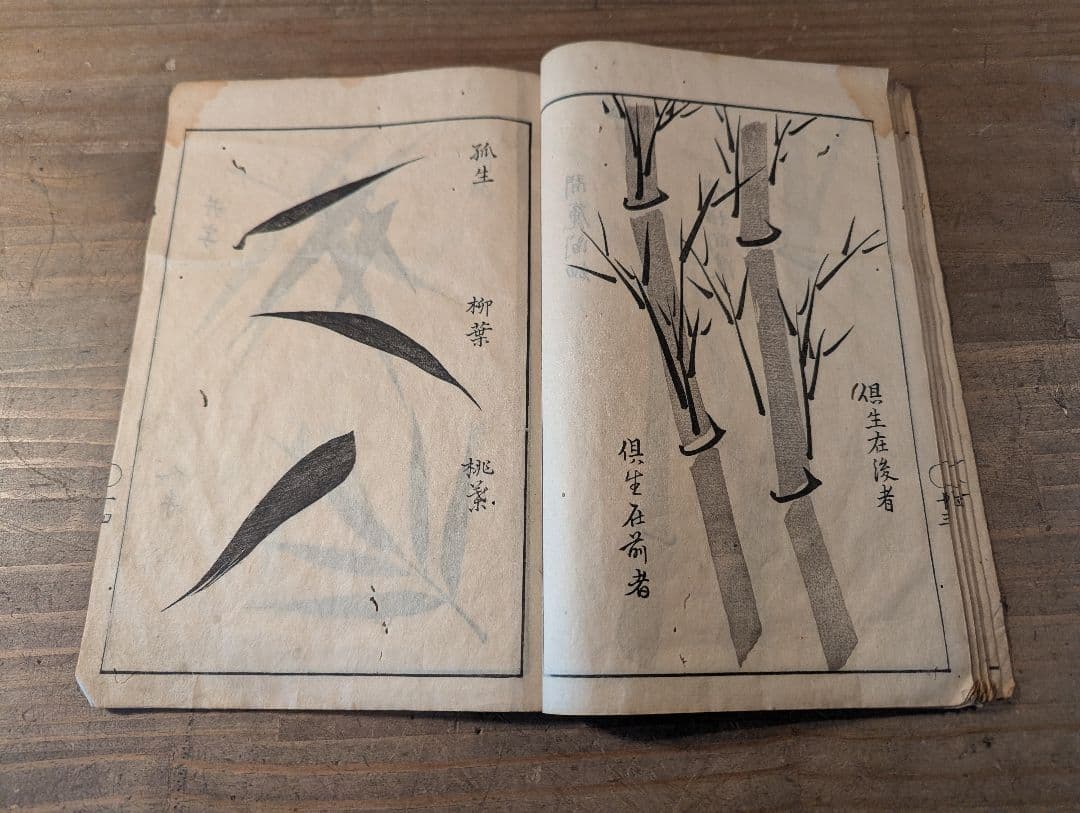 俱生在後者
俱生在前者
孤生
柳葉
桃葉